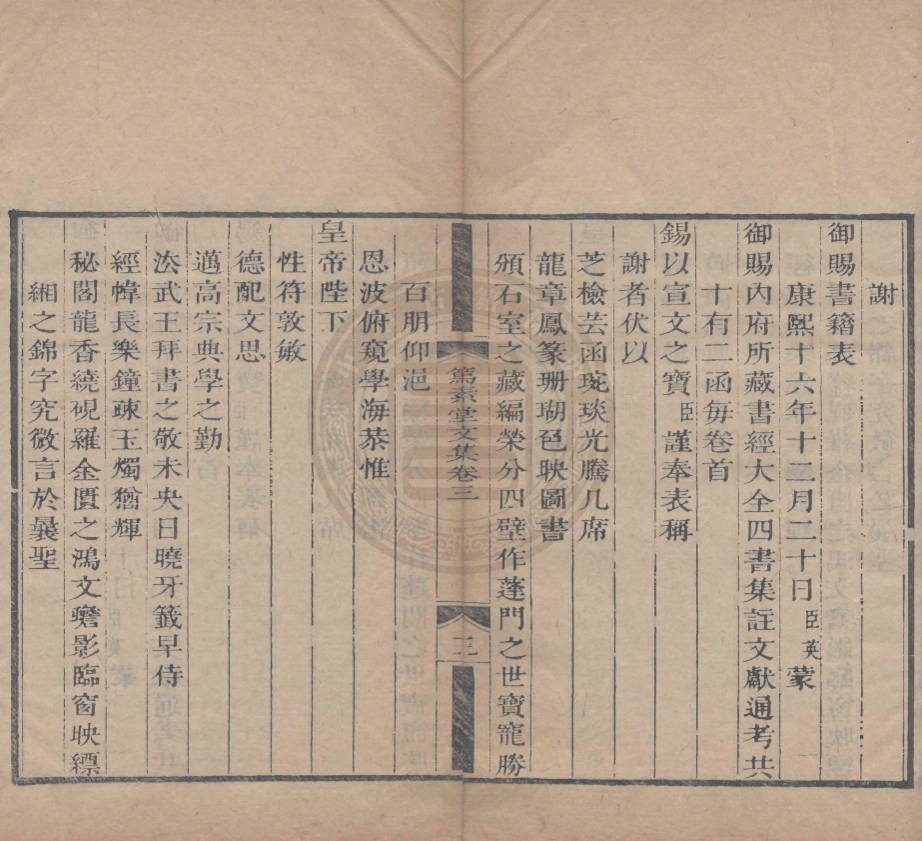 謝
御賜書籍表
康熙十六年十二月二十日臣英蒙
御賜內府所藏書經大全四書集註文獻通考共
十有二函每卷首
錫以宣文之寶臣謹奉表稱
謝者伏以
芝檢芸函琬琰光騰几席
龍章鳳篆珊瑚色映圖書
頒石室之藏編榮分四壁作蓬門之世寶寵勝
百朋仰浥
恩波俯窺學海恭惟
皇帝陛下
性符敦敏
德配文思
邁高宗典學之勤
法武王拜書之敬未央日曉牙籤早侍
經幃長樂鐘疎玉燭猶輝
秘閣龍香繞硯羅金匱之鴻文蟾影臨窗映縹
緗之錦字究微言於曩聖
篤素堂文集卷三
三